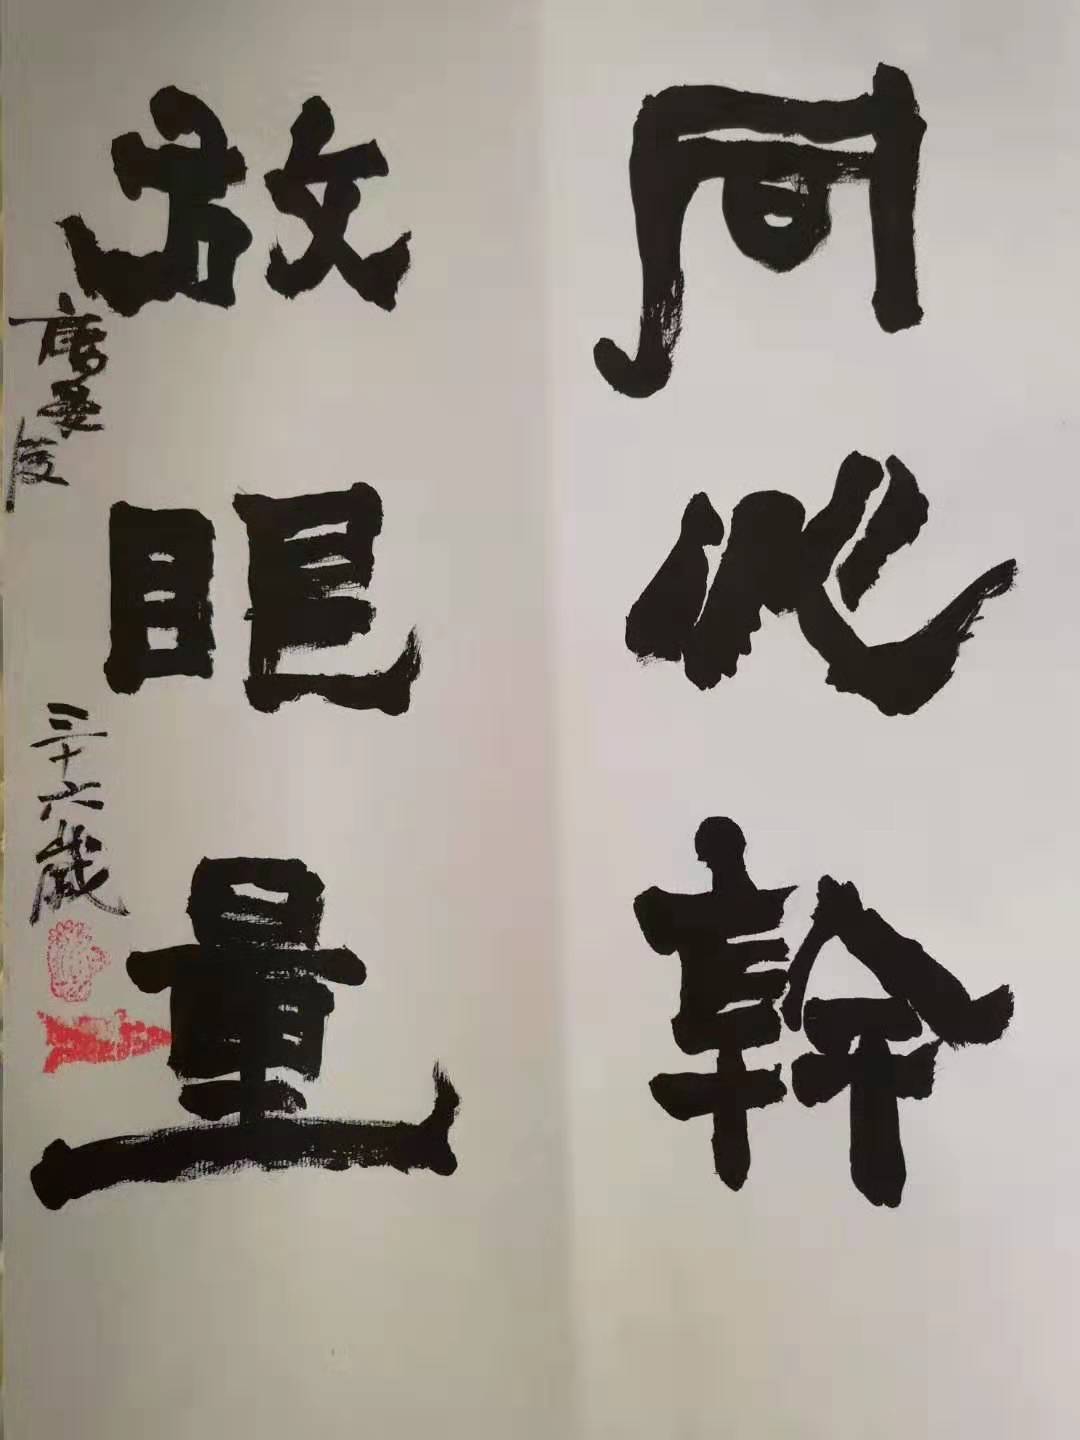 同心幹
放眼量
唐
三十六歲